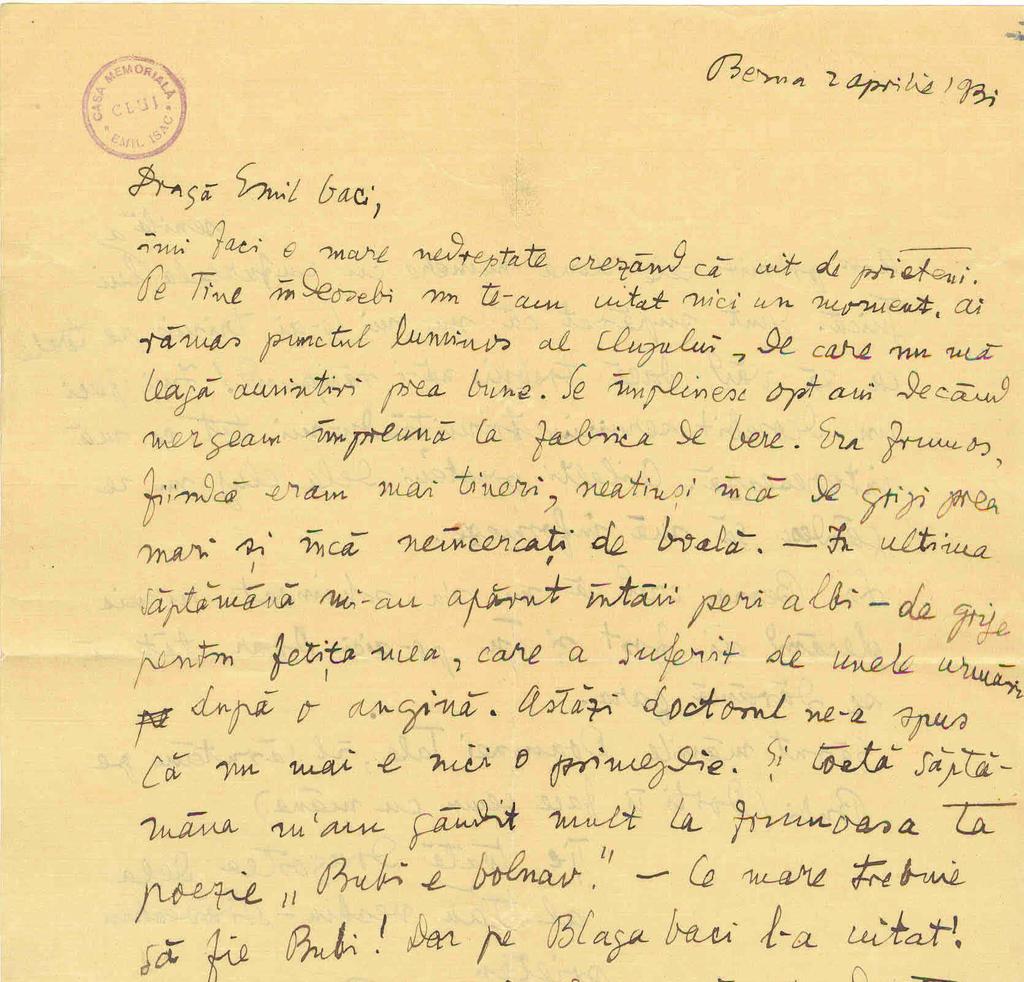 CASA MEMORIALĂ
CLUJ
EMIL ISAC
Berna 2 aprilie 1931
Dragă Emil baci,
îmi faci o mare nedreptate crezând că uit de prieteni.
Pe Tine îndeosebi nu te-am uitat nici un moment. Ai
rămas punctul luminos al Clujului, de care nu mă
leagă amintiri prea bune. Se împlinesc opt ani decând
mergeam împreună la fabrica de bere. Era frumos,
fiindcă eram mai tineri, neatinși încă de griji prea
mari și încă neîncercați de boală. – În ultima
săptămână mi-au apărut întâii peri albi – de grije
pentru fetița mea, care a suferit de unele urmări
după o angină. Astăzi doctorul ne-a spus
că nu mai e nici o primejdie. Și toată săptă-
mâna m'am gândit mult la frumoasa ta
poezie „Bubi e bolnav." – Ce mare trebuie
să fie Bubi! Dar pe Blaga baci l-a uitat!